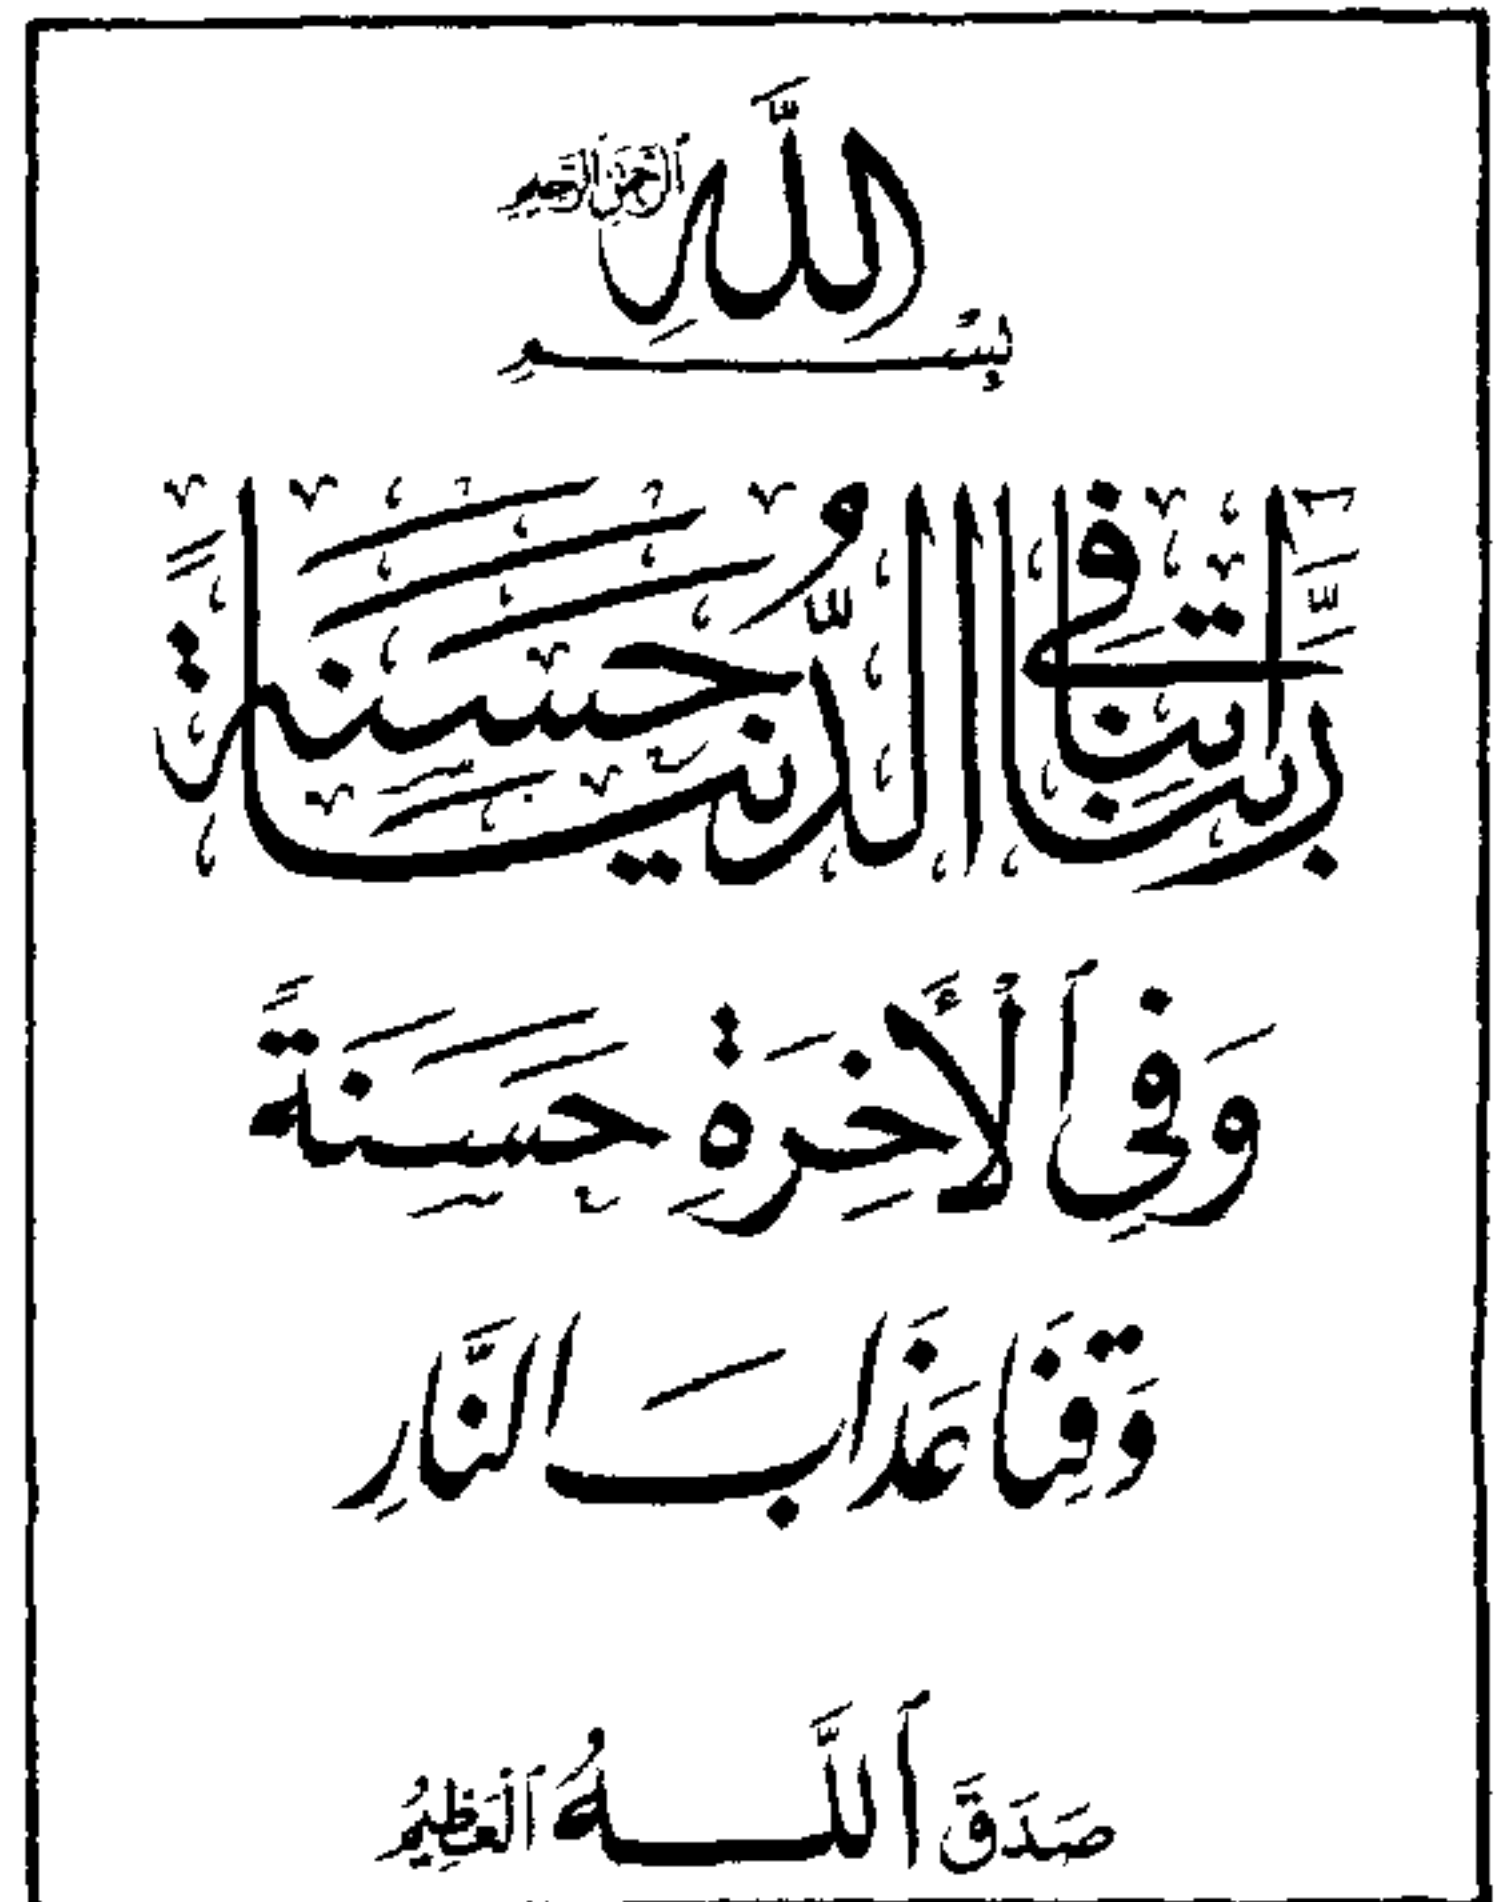 بِسْمِ اللَّهِ الرَّحْمَنِ الرَّحِيمِ
رَبَّنَا آتِنَا فِي الدُّنْيَا حَسَنَةً
وَفِي الْآخِرَةِ حَسَنَةً
وَقِنَا عَذَابَ النَّارِ
صَدَقَ اللَّهُ الْعَظِيمُ